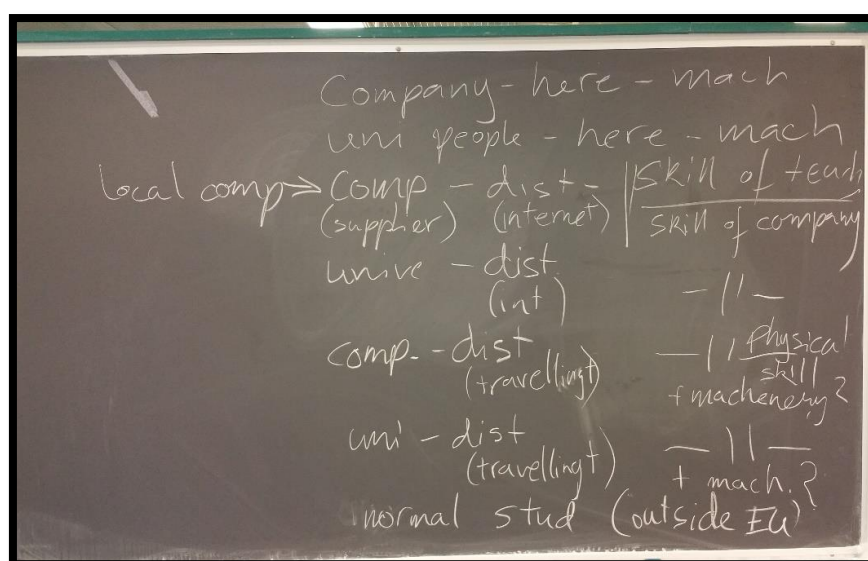 Company - here - mach
uni people - here - mach
local comp => comp - dist - | skill of teach
(supplier) (internet) | skill of company
unive - dist
(int) - 11 -
comp. - dist - 11 physical
(travellingt) skill
+ machenery?
uni - dist - 11 -
(travellingt) + mach.?
normal stud (outside EU)